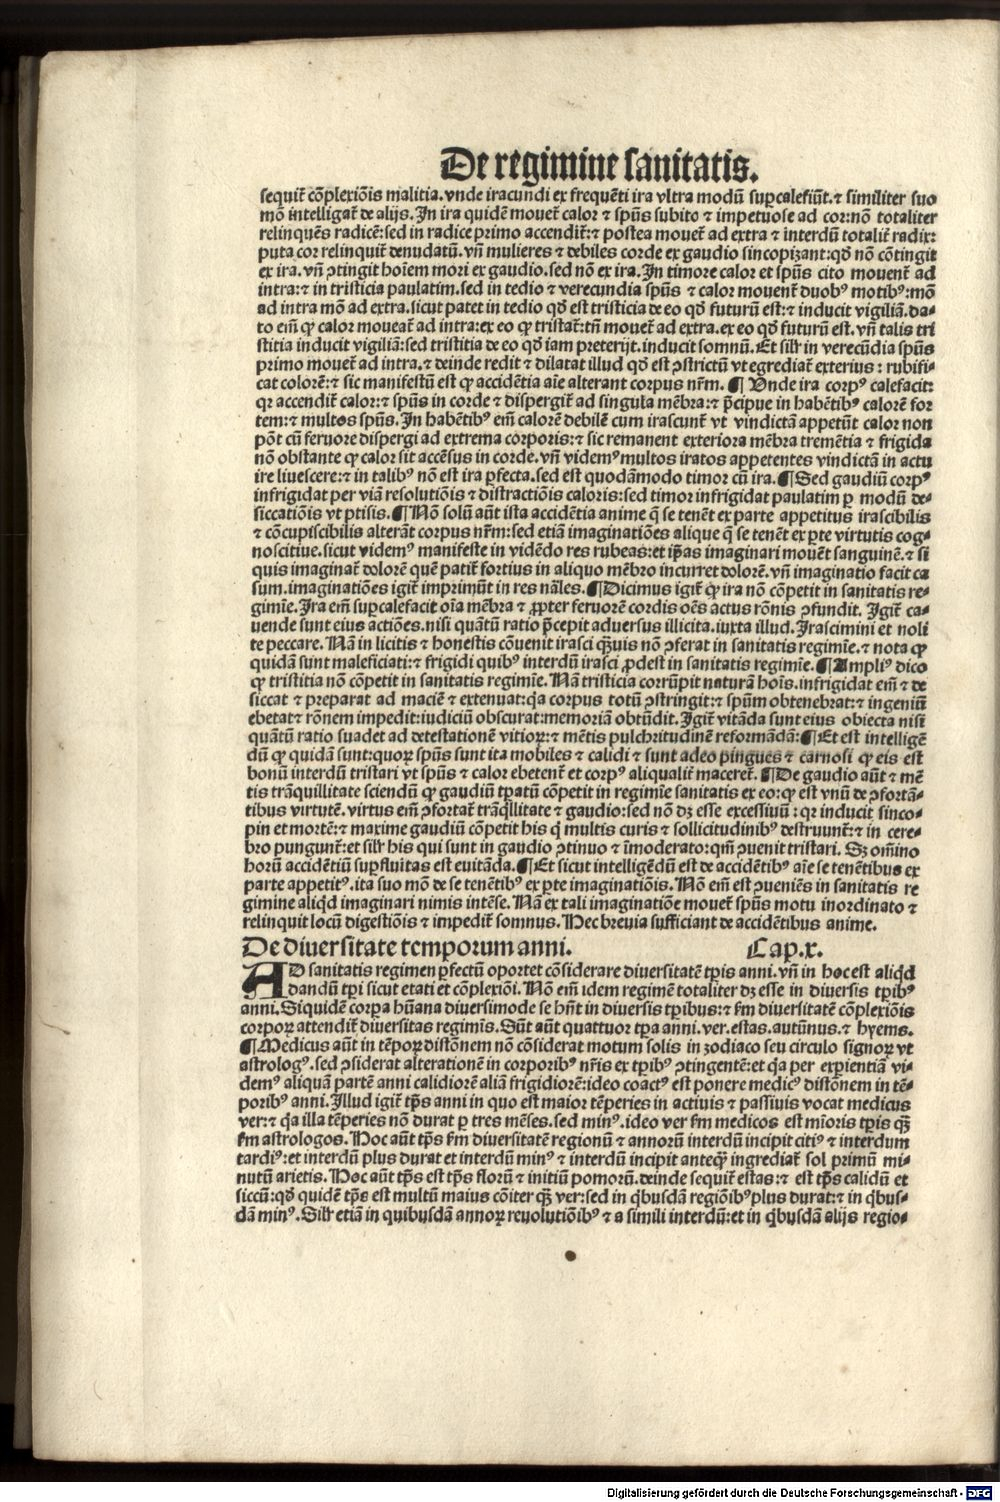 De regimine sanitatis.
sequit᷑ cõplexiõis malitia. vnde iracundi ex frequẽti ira vltra modũ suꝑcalefiũt. ⁊ similiter suo
mõ intelligat᷑ de alijs. In ira quidẽ mouet᷑ calor ⁊ spũs subito ⁊ impetuose ad cor: nõ totaliter
relinquẽs radicẽ: sed in radice primo accendit᷑: ⁊ postea mouet᷑ ad extra ⁊ interdũ totalit᷑ radix:
puta cor relinquit᷑ denudatũ. vñ mulieres ⁊ debiles corde ex gaudio sincopizant: qď nõ cõtingit
ex ira. vñ ꝯtingit hoĩem mori ex gaudio. sed nõ ex ira. In timore calor et spũs cito mouent᷑ ad
intra: ⁊ in tristicia paulatim. sed in tedio ⁊ verecundia spũs ⁊ calor mouent᷑ duobꝰ motibꝰ: mõ
ad intra mõ ad extra. sicut patet in tedio qď est tristicia de eo qď futurũ est: ⁊ inducit vigiliã. da-
to em̃ ꝙ calor moueat᷑ ad intra: ex eo ꝙ tristat᷑: tñ mouet᷑ ad extra. ex eo qď futurũ est. vñ talis tri
stitia inducit vigiliã: sed tristitia de eo qď iam preterijt. inducit somnũ. Et silr̃ in verecũdia spũs
primo mouet᷑ ad intra. ⁊ deinde redit ⁊ dilatat illud qď est ꝯstrictũ vt egrediat᷑ exterius: rubifi-
cat colorẽ: ⁊ sic manifestũ est ꝙ accidẽtia aĩe alterant corpus nr̃m. ¶ Vnde ira corpꝰ calefacit:
qꝛ accendit᷑ calor: ⁊ spũs in corde ⁊ dispergit᷑ ad singula mẽbra: ⁊ p̃cipue in habẽtibꝰ calorẽ for
tem: ⁊ multos spũs. In habẽtibꝰ em̃ calorẽ debilẽ cum irascunt᷑ vt vindictã appetũt calor non
põt cũ feruore dispergi ad extrema corporis: ⁊ sic remanent exteriora mẽbra tremẽtia ⁊ frigida
nõ obstante ꝙ calor sit accẽsus in corde. vñ videmꝰ multos iratos appetentes vindictã in actu
ire liuescere: ⁊ in talibꝰ nõ est ira ꝑfecta. sed est quodãmodo timor cũ ira. ¶ Sed gaudiũ corpꝰ
infrigidat per viã resolutiõis ⁊ distractiõis caloris: sed timor infrigidat paulatim ꝑ modũ de-
siccatiõis vt ptisis. ¶ Nõ solũ aũt ista accidẽtia anime q̃ se tenẽt ex parte appetitus irascibilis
⁊ cõcupiscibilis alterãt corpus nr̃m: sed etiã imaginatiões alique q̃ se tenẽt ex ꝑte virtutis cog-
noscitiue. sicut videmꝰ manifeste in vidẽdo res rubeas: et ip̃as imaginari mouẽt sanguinẽ. ⁊ si
quis imaginat᷑ dolorẽ quẽ patit᷑ fortius in aliquo mẽbro incurret dolorẽ. vñ imaginatio facit ca
sum. imaginatiões igit᷑ imprimũt in res nãles. ¶ Dicimus igit᷑ ꝙ ira nõ cõpetit in sanitatis re-
gimĩe. Ira em̃ suꝑcalefacit oĩa mẽbra ⁊ ꝓpter feruorẽ cordis oẽs actus rõnis ꝯfundit. Igit᷑ ca-
uende sunt eius actiões. nisi quãtũ ratio p̃cepit aduersus illicita. iuxta illud. Irascimini et noli
te peccare. Nã in licitis ⁊ honestis cõuenit irasci q̃uis nõ ꝯferat in sanitatis regimĩe. ⁊ nota ꝙ
quidã sunt maleficiati: ⁊ frigidi quibꝰ interdũ irasci ꝓdest in sanitatis regimĩe. ¶ Ampliꝰ dico
ꝙ tristitia nõ cõpetit in sanitatis regimĩe. Nã tristicia corrũpit naturã hoĩs. infrigidat em̃ ⁊ de
siccat ⁊ preparat ad maciẽ ⁊ extenuat: q̇a corpus totũ ꝯstringit: ⁊ spũm obtenebrat: ⁊ ingeniũ
ebetat ⁊ rõnem impedit: iudiciũ obscurat: memoriã obtũdit. Igit᷑ vitãda sunt eius obiecta nisi
quãtũ ratio suadet ad detestationẽ vitioꝝ: ⁊ mẽtis pulchritudinẽ reformãdã: ¶ Et est intelligẽ
dũ ꝙ quidã sunt: quoꝝ spũs sunt ita mobiles ⁊ calidi ⁊ sunt adeo pingues ⁊ carnosi ꝙ eis est
bonũ interdũ tristari vt spũs ⁊ calor ebetent᷑ et corpꝰ aliqualit᷑ maceret᷑. ¶ De gaudio aũt ⁊ mẽ
tis trãquillitate sciendũ ꝙ gaudiũ tꝑatũ cõpetit in regimĩe sanitatis ex eo: ꝙ est vnũ de ꝯfortã-
tibus virtutẽ. virtus em̃ ꝯfortat᷑ trãq̇llitate ⁊ gaudio: sed nõ dꝫ esse excessiuũ: qꝛ inducit sinco-
pin et mortẽ: ⁊ maxime gaudiũ cõpetit his q̇ multis curis ⁊ sollicitudinibꝰ destruunt᷑: ⁊ in cere-
bro pungunt᷑: et silr̃ his qui sunt in gaudio ꝯtinuo ⁊ ĩmoderato: qm̃ ꝯuenit tristari. Sꝫ om̃ino
horũ accidẽtiũ suꝑfluitas est euitãda. ¶ Et sicut intelligẽdũ est de accidẽtibꝰ aĩe se tenẽtibus ex
parte appetitꝰ. ita suo mõ de se tenẽtibꝰ ex ꝑte imaginatiõis. Nõ em̃ est ꝯueniẽs in sanitatis re
gimine aliq̇d imaginari nimis intẽse. Nã ex tali imaginatiõe mouet᷑ spũs motu inordinato ⁊
relinquit locũ digestiõis ⁊ impedit᷑ somnus. Hec breuia sufficiant de accidẽtibus anime.
De diuersitate temporum anni. Cap. x.
AD sanitatis regimen ꝑfectũ oportet cõsiderare diuersitatẽ tꝑis anni. vñ in hoc est aliq̇d
dandũ tꝑi sicut etati et cõplexiõi. Nõ em̃ idem regimẽ totaliter dꝫ esse in diuersis tꝑibꝰ
anni. Siquidẽ corpa hũana diuersimode se hñt in diuersis tꝑibus: ⁊ ẜm diuersitatẽ cõplexiõis
corpoꝝ attendit᷑ diuersitas regimĩs. Sũt aũt quattuor tꝑa anni. ver. estas. autũnus. ⁊ hyems.
¶ Medicus aũt in tẽpoꝝ distõnem nõ cõsiderat motum solis in zodiaco seu circulo signoꝝ vt
astrologꝰ. sed ꝯsiderat alterationẽ in corporibꝰ nr̃is ex tꝑibꝰ ꝯtingentẽ: et q̇a per exꝑientiã vi-
demꝰ aliquã partẽ anni calidiorẽ aliã frigidiorẽ: ideo coactꝰ est ponere medicꝰ distõnem in tẽ-
poribꝰ anni. Illud igit᷑ tp̃s anni in quo est maior tẽperies in actiuis ⁊ passiuis vocat medicus
ver: ⁊ q̇a illa tẽperies nõ durat ꝑ tres mẽses. sed minꝰ. ideo ver ẜm medicos est mĩoris tꝑis q̃ꝫ
ẜm astrologos. Hoc aũt tp̃s ẜm diuersitatẽ regionũ ⁊ annorũ interdũ incipit citiꝰ ⁊ interdum
tardiꝰ: et interdũ plus durat et interdũ minꝰ ⁊ interdũ incipit anteq̃ꝫ ingrediat᷑ sol primũ mi-
nutũ arietis. Hoc aũt tp̃s est tp̃s florũ ⁊ initiũ pomorũ. deinde sequit᷑ estas: ⁊ est tp̃s calidũ et
siccũ: qď quidẽ tp̃s est multũ maius cõiter q̃ꝫ ver: sed in q̇busdã regiõibꝰ plus durat: ⁊ in q̇bus-
dã minꝰ. Silr̃ etiã in quibusdã annoꝝ reuolutiõibꝰ ⁊ a simili interdũ: et in q̇busdã alijs regio-
Digitalisierung gefördert durch die Deutsche Forschungsgemeinschaft - DFG